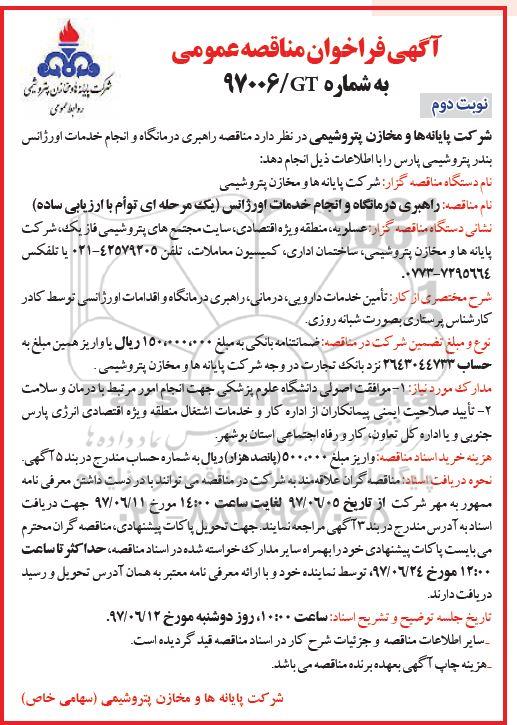 آگهی فراخوان مناقصه عمومی
به شماره ۹۷۰۰۶/GT
شرکت پایانه‌ها و مخازن پتروشیمی
روابط عمومی
نوبت دوم
شرکت پایانه‌ها و مخازن پتروشیمی در نظر دارد مناقصه راهبری درمانگاه و انجام خدمات اورژانس
بندر پتروشیمی پارس را با اطلاعات ذیل انجام دهد:
نام دستگاه مناقصه گزار: شرکت پایانه ها و مخازن پتروشیمی
نام مناقصه: راهبری درمانگاه و انجام خدمات اورژانس (یک مرحله ای توأم با ارزیابی ساده)
نشانی دستگاه مناقصه گزار: عسلویه، منطقه ویژه اقتصادی، سایت مجتمع های پتروشیمی فاز یک، شرکت
پایانه ها و مخازن پتروشیمی، ساختمان اداری، کمیسیون معاملات، تلفن ۴۲۵۷۹۲۰۵-۰۲۱ یا تلفکس
۷۲۹۵۶۶۴-۰۷۷۳.
شرح مختصری از کار: تأمین خدمات دارویی، درمانی، راهبری درمانگاه و اقدامات اورژانسی توسط کادر
کارشناس پرستاری بصورت شبانه روزی.
نوع و مبلغ تضمین شرکت در مناقصه: ضمانتنامه بانکی به مبلغ ۱۵۰,۰۰۰,۰۰۰ ریال یا واریز همین مبلغ به
حساب ۲۶۴۳۰۴۴۷۳۳ نزد بانک تجارت در وجه شرکت پایانه ها و مخازن پتروشیمی .
مدارک مورد نیاز: ۱- موافقت اصولی دانشگاه علوم پزشکی جهت انجام امور مرتبط با درمان و سلامت
۲- تأیید صلاحیت ایمنی پیمانکاران از اداره کار و خدمات اشتغال منطقه ویژه اقتصادی انرژی پارس
جنوبی و یا اداره کل تعاون، کار و رفاه اجتماعی استان بوشهر.
هزینه خرید اسناد مناقصه: واریز مبلغ ۵۰۰,۰۰۰ (پانصد هزار) ریال به شماره حساب مندرج در بند ۵ آگهی.
نحوه دریافت اسناد: مناقصه گران علاقه‌مند به شرکت در مناقصه می توانند با در دست داشتن معرفی نامه
ممهور به مهر شرکت از تاریخ ۹۷/۰۶/۰۵ لغایت ساعت ۱۴:۰۰ مورخ ۹۷/۰۶/۱۱ جهت دریافت
اسناد به آدرس مندرج در بند ۳ آگهی مراجعه نمایند. جهت تحویل پاکات پیشنهادی، مناقصه گران محترم
می بایست پاکات پیشنهادی خود را بهمراه سایر مدارک خواسته شده در اسناد مناقصه، حداکثر تا ساعت
۱۲:۰۰ مورخ ۹۷/۰۶/۲۴، توسط نماینده خود و با ارائه معرفی نامه معتبر به همان آدرس تحویل و رسید
دریافت دارند.
تاریخ جلسه توضیح و تشریح اسناد: ساعت ۱۰:۰۰، روز دوشنبه مورخ ۹۷/۰۶/۱۲.
_سایر اطلاعات مناقصه و جزئیات شرح کار در اسناد مناقصه قید گردیده است.
_هزینه چاپ آگهی بعهده برنده مناقصه می باشد.
شرکت پایانه ها و مخازن پتروشیمی (سهامی خاص)